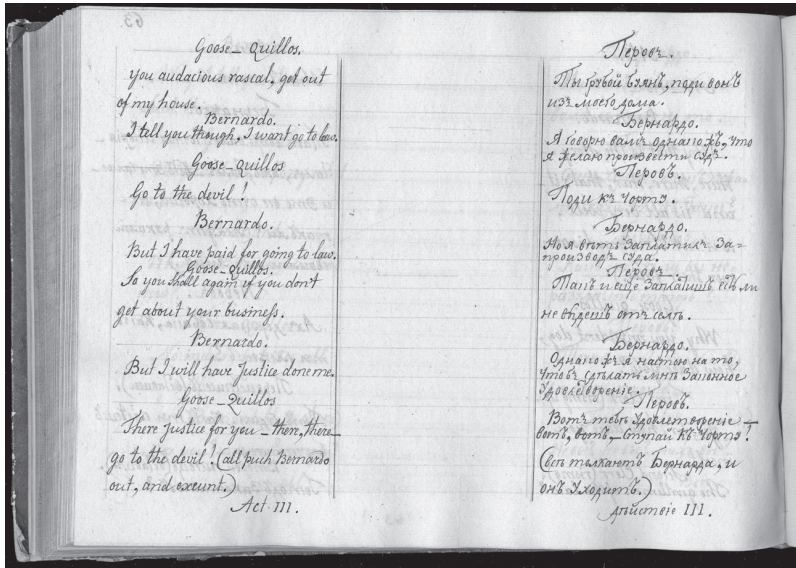 Goose-Quillos.
you audacious rascal, get out
of my house.
Bernardo.
I tell you though, I want go to law.
Goose-Quillos
Go to the devil!
Bernardo.
But I have paid for going to law.
Goose-Quillos.
So you shall again if you don't
get about your business.
Bernardo.
But I will have Justice done me.
Goose-Quillos
There Justice for you – there, there –
go to the devil! (all push Bernardo
out, and exeunt.)
Act III.
Перовъ.
Ты грубой буянъ, поди вонъ
изъ моего дома.
Бернардо.
Я говорю вамъ однако жъ, что
я желаю произвести судъ.
Перовъ.
Поди къ чорту.
Бернардо.
Но я вѣть заплатилъ за=
производъ суда.
Перовъ.
Такъ и еще заплатишь если
не выдешь отъ селъ.
Бернардо.
Однако жъ я настою на то,
чтобъ сдѣлать мнѣ законное
удовлетвореніе.
Перовъ.
Вотъ тебѣ удовлетвореніе –
вотъ, вотъ, – ступай къ чорту!
(всѣ толкаютъ Бернарда, и
онъ уходитъ.)
дѣйствіе III.